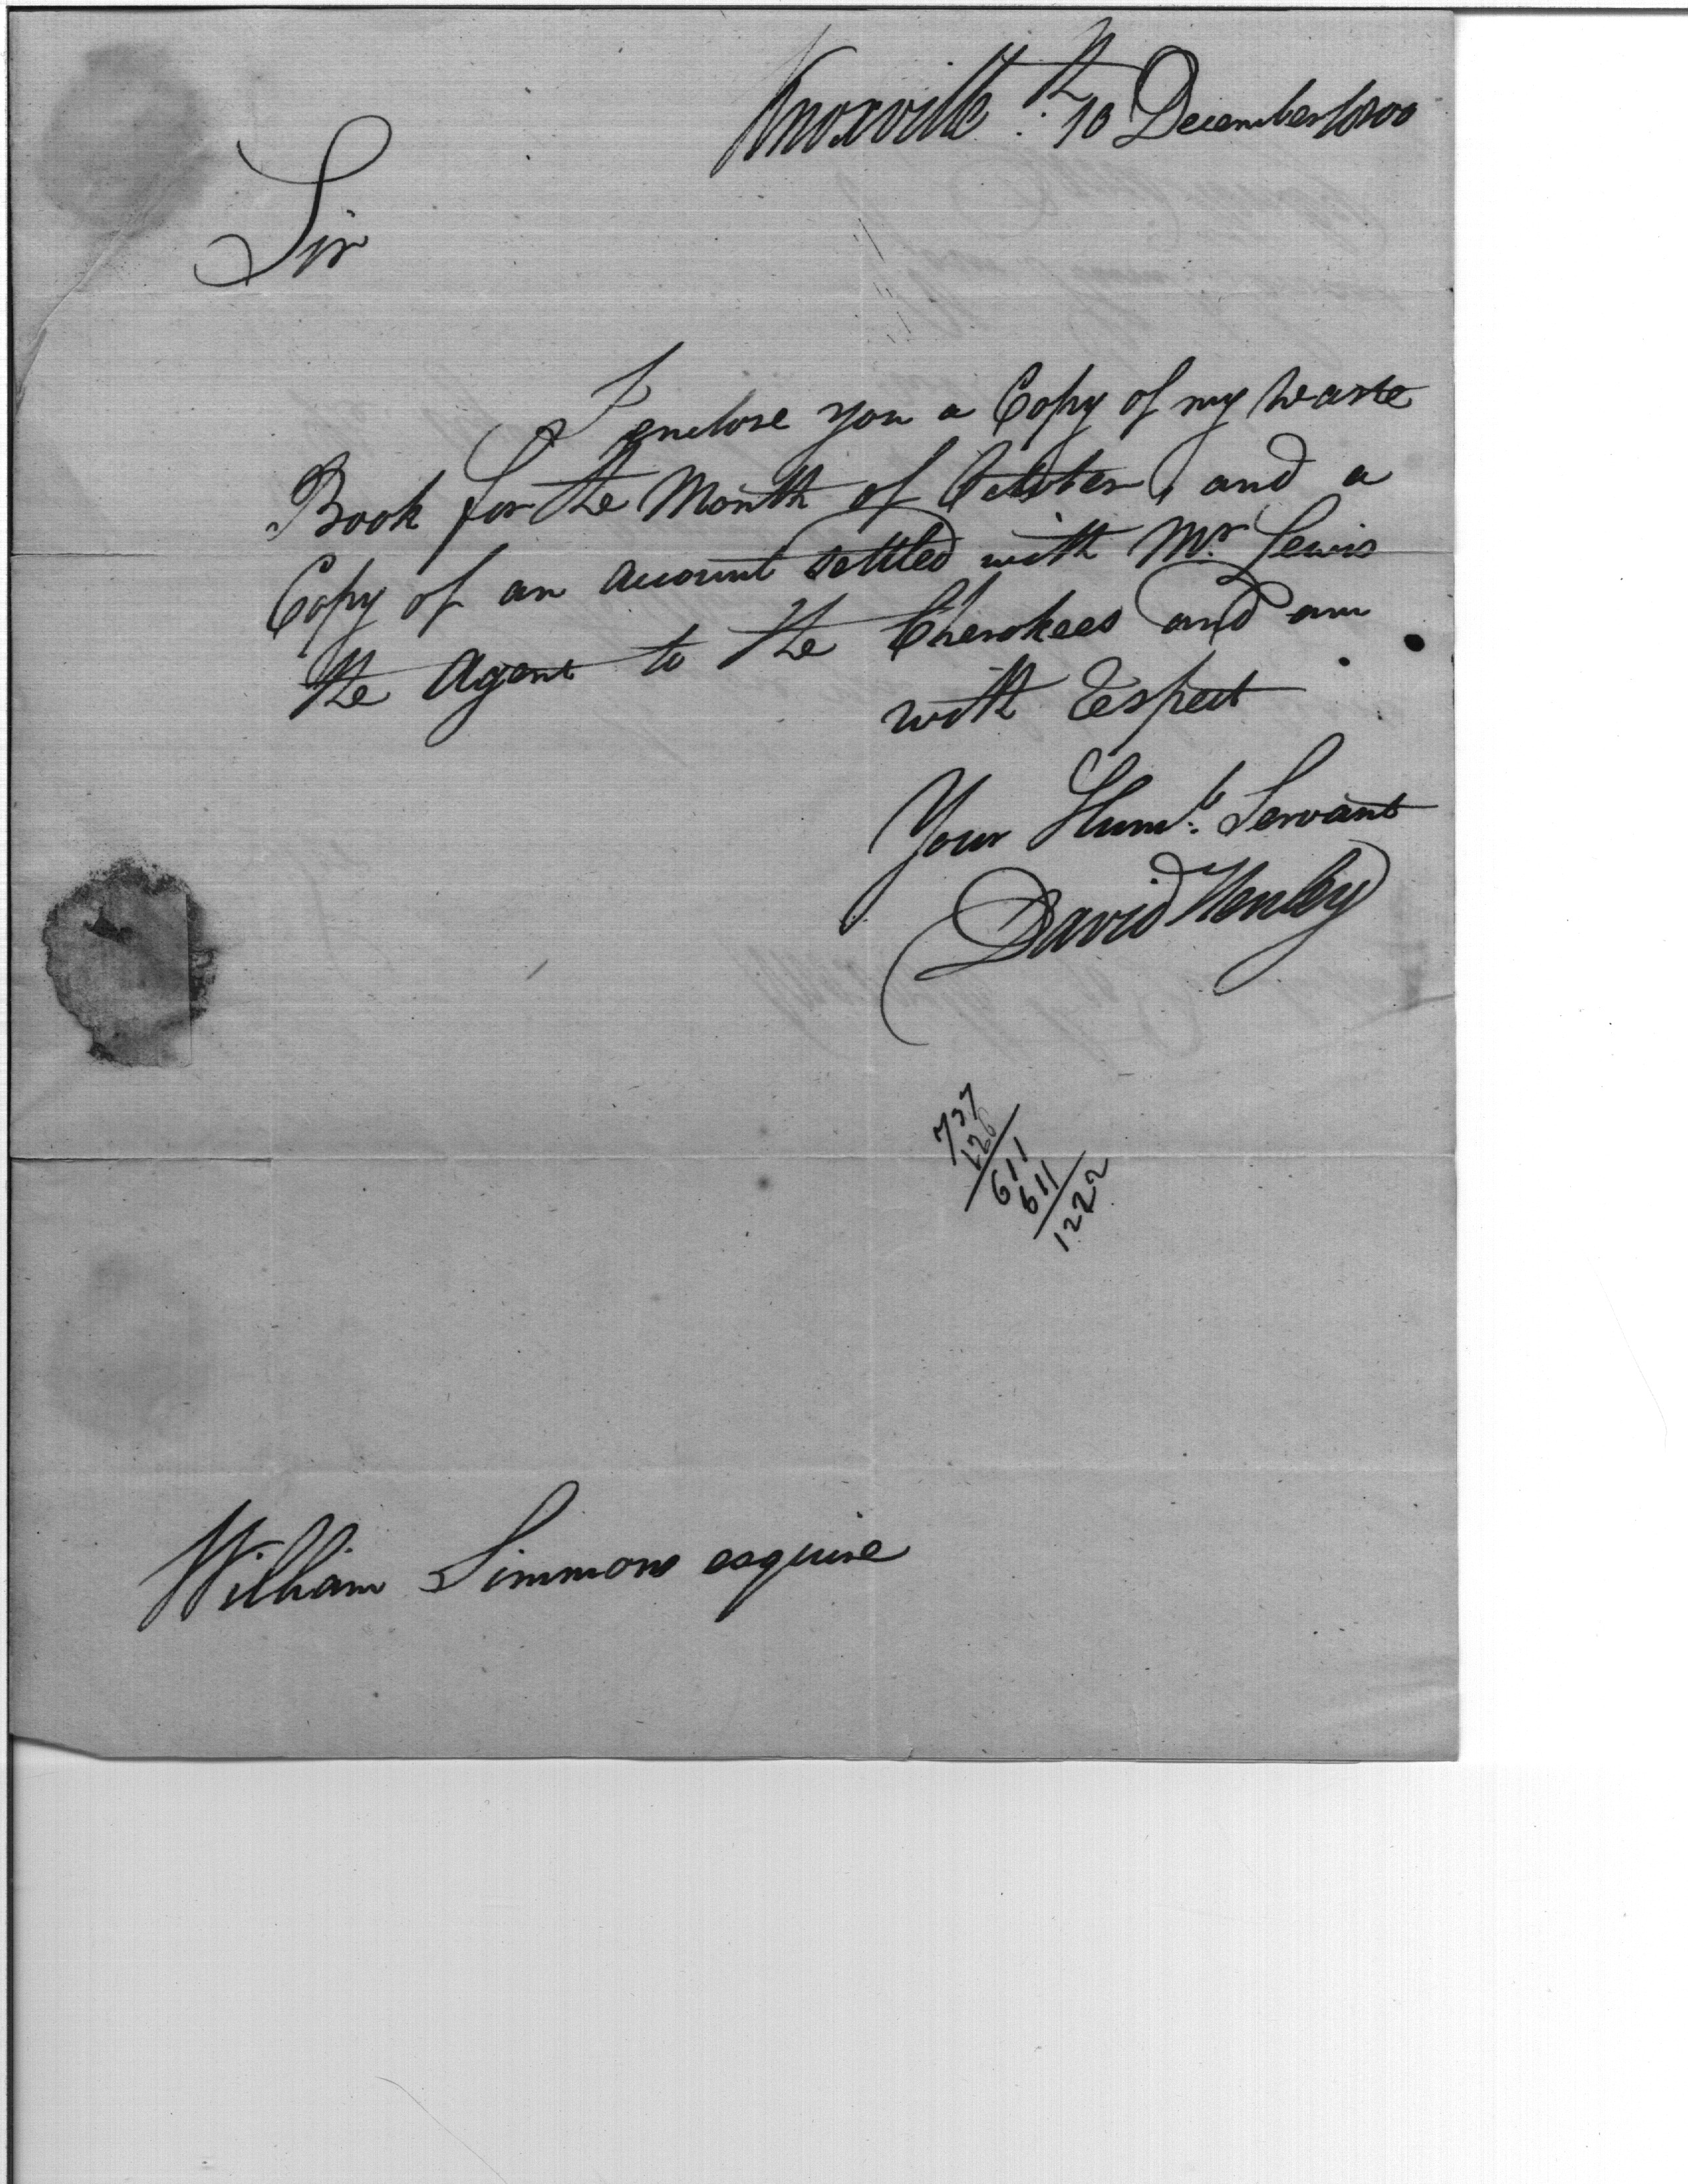 Knoxville 10th December 1800
Sir
I enclose you a Copy of my Waste
Book for the Month of October, and a
Copy of an account settled with Mr. Lewis
the Agent to the Cherokees and am
with respect
Your Humb. Servant
David Henley
737
126
611
611
1222
William Simmons esquire